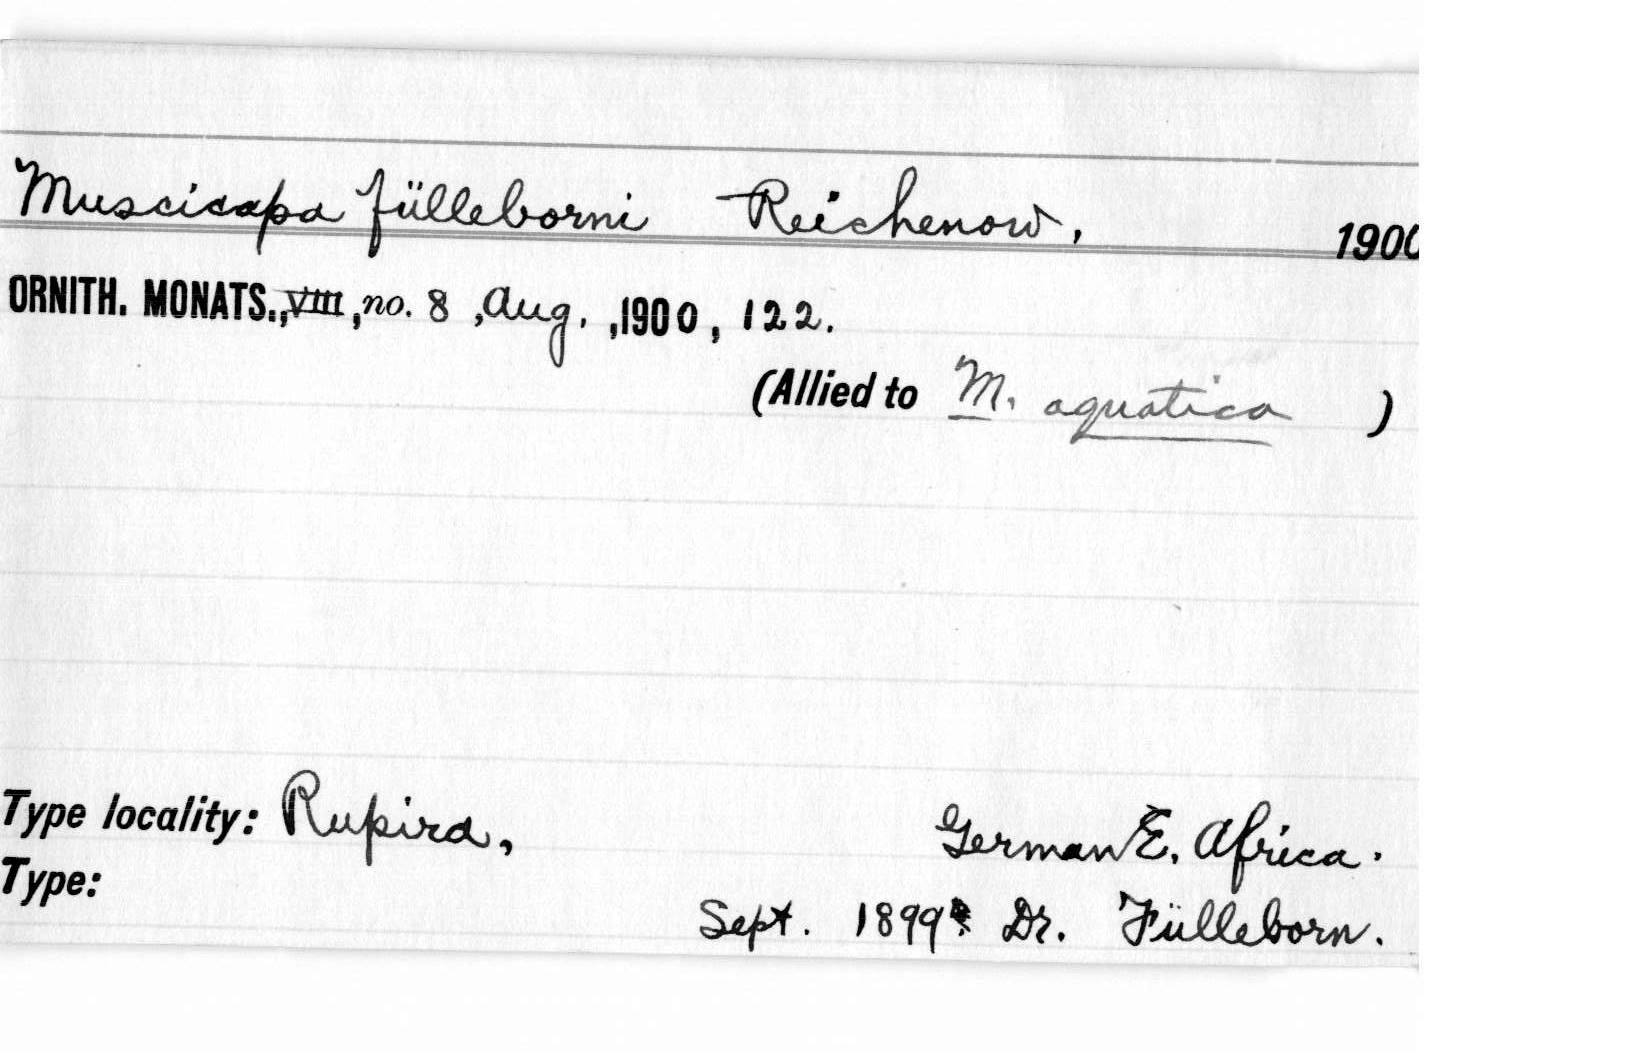 Muscicapa fülleborni Reichenow, 1900
ORNITH. MONATS., VIII, no. 8, Aug., 1900, 122.
(Allied to M. aquatica )
Type locality: Rupira, German E. Africa.
Type:
Sept. 1899 Dr. Fülleborn.